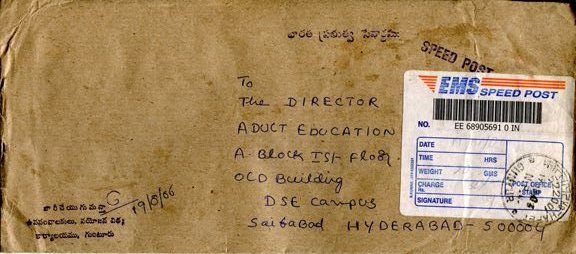 భారత ప్రభుత్వ సేవార్థము
SPEED POST
To
The DIRECTOR
ADUCT EDUCATION
A-Block Ist Floor
OLD Building
DSE Campus
Saibabad HYDERABAD-500004
EMS SPEED POST
NO. EE 68905691 0 IN
DATE
TIME HRS
WEIGHT GMS
CHARGE
Rs.
SIGNATURE
POST OFFICE
STAMP
జారీచేయువారు
19/8/06
ఉపసంచాలకులు, వయోజన విద్య
కార్యాలయము, గుంటూరు